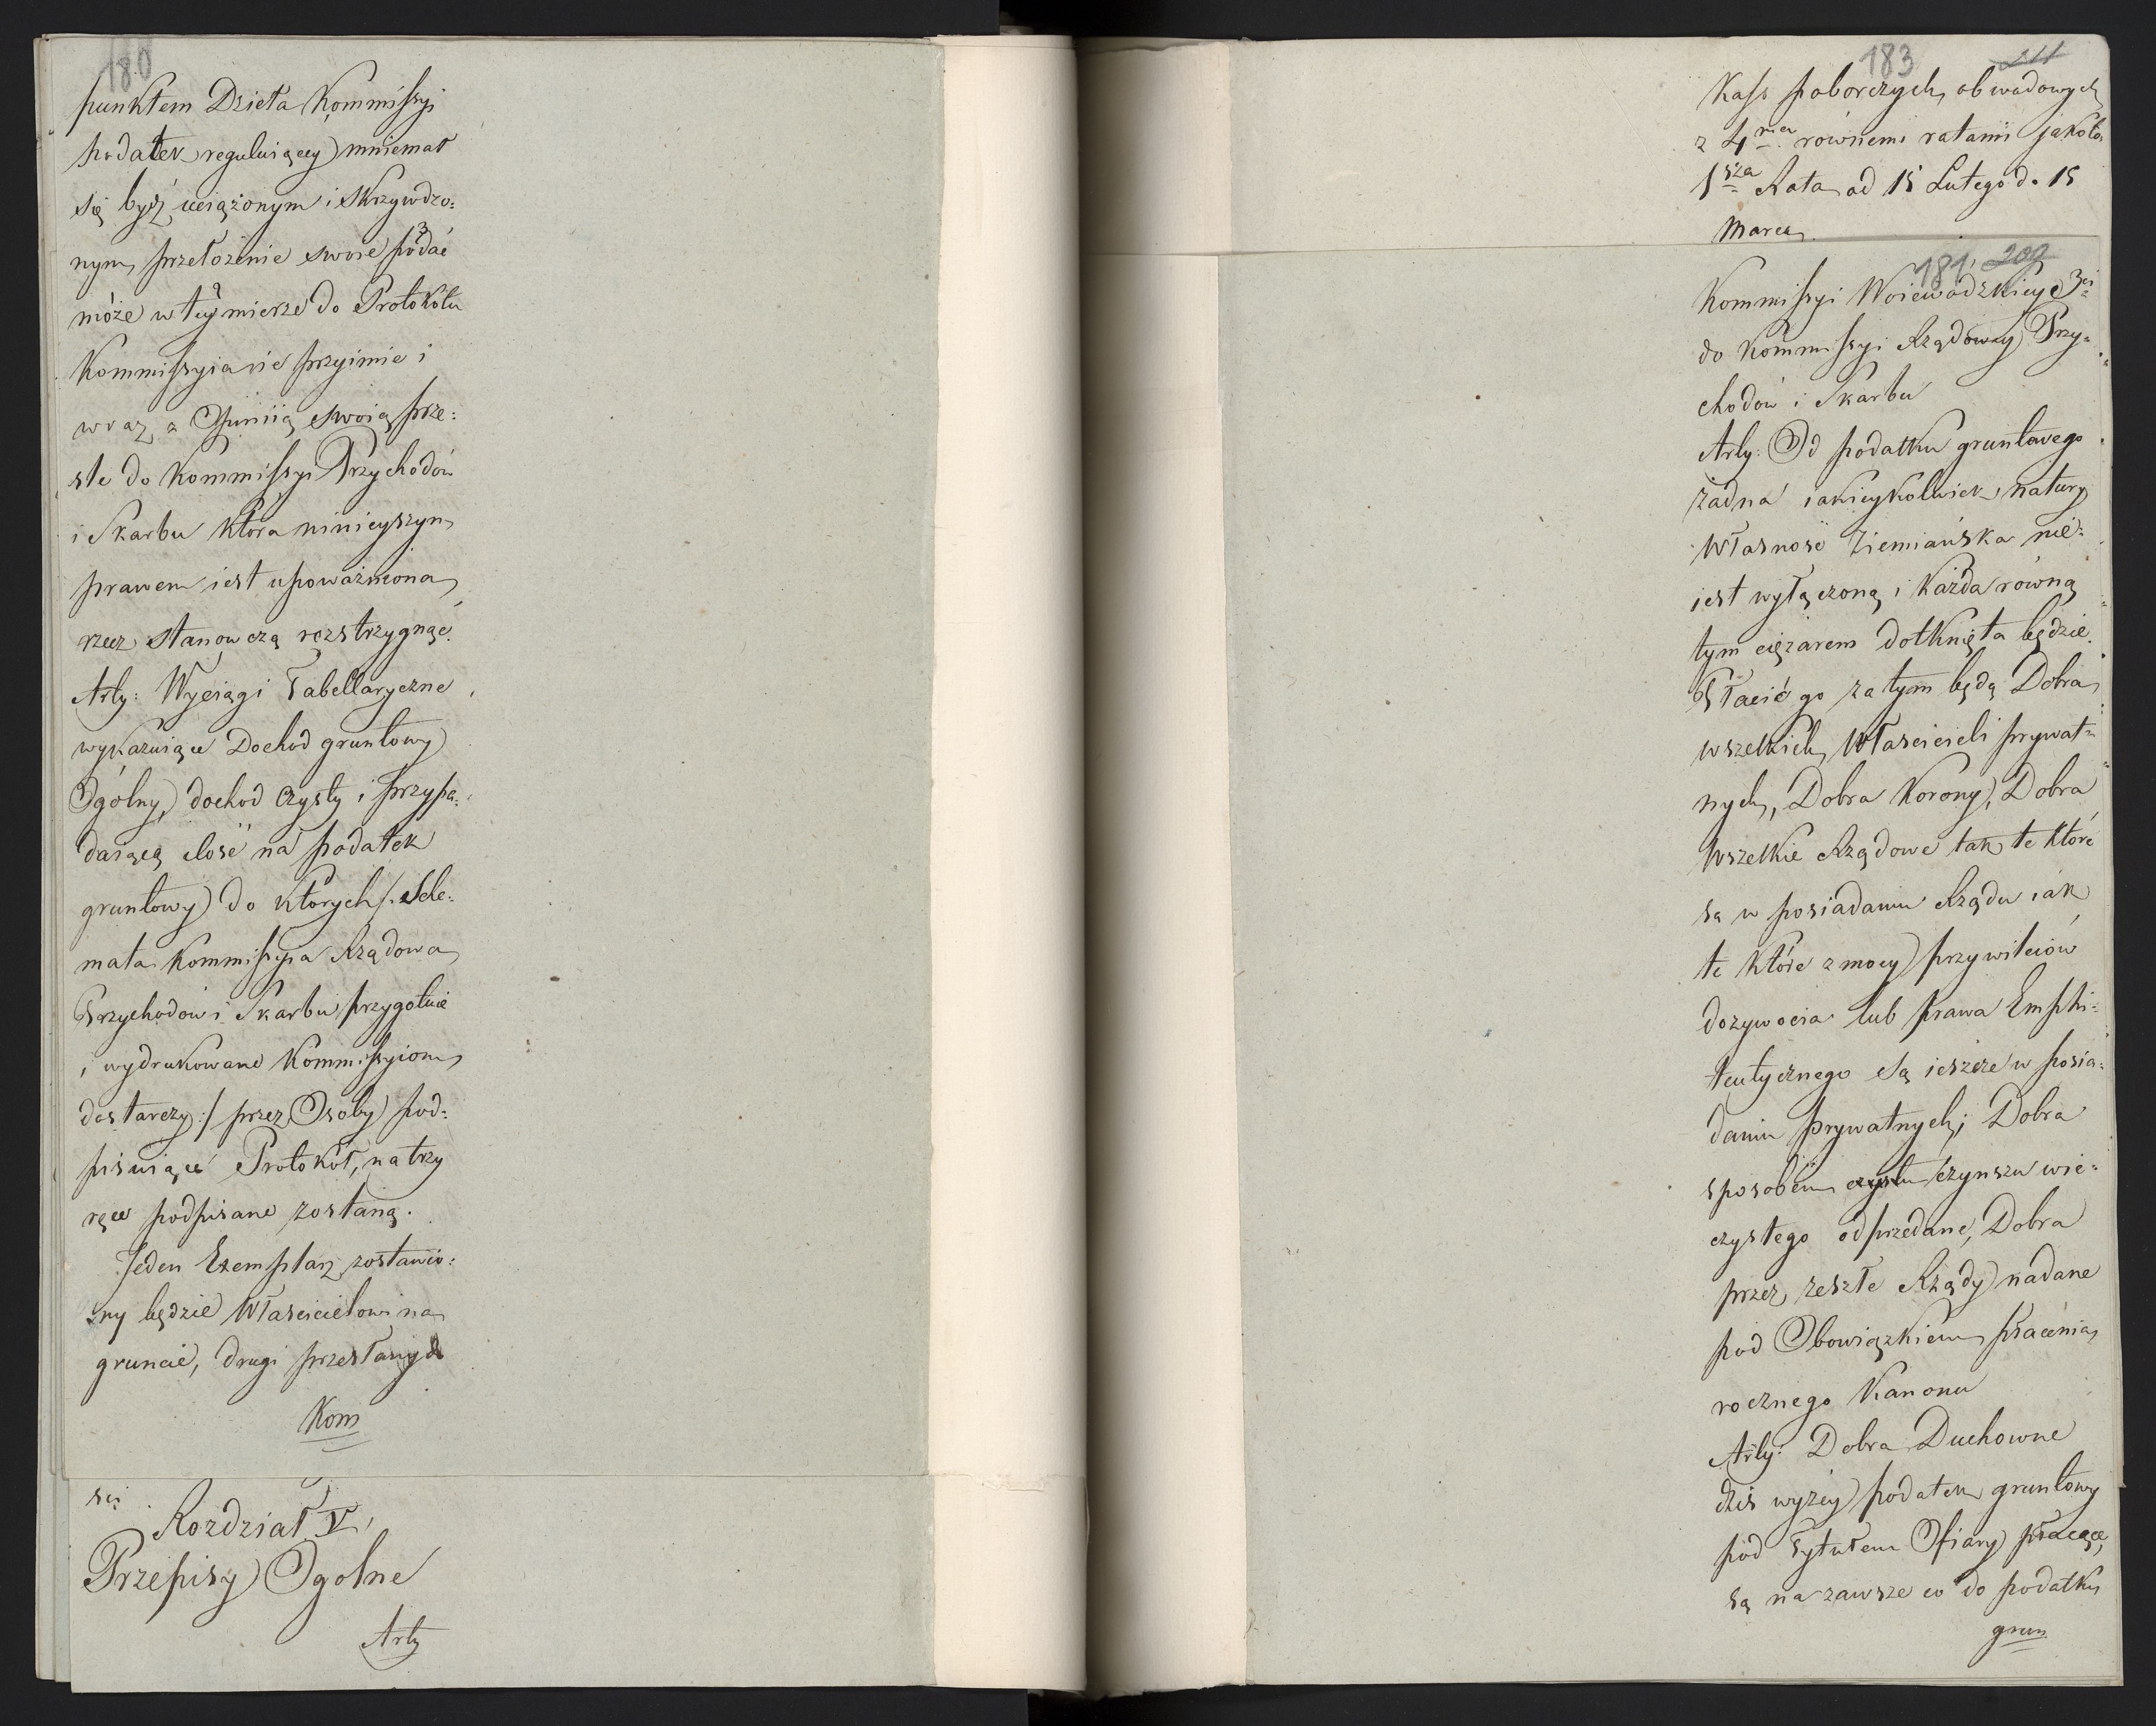 180
punktem Dzieła Kommissyi
podatek reguluiący) mniemał
się bydź uciążonym i skrzywdzo:
nym, przełożenie swoie podać
może w tey mierze do Protokółu
Kommissyia nie przyimie i
wraz z Opiniią swoią prze:
śle do Kommissyi Przychodów
i Skarbu która ninieyszym
prawem iest upoważniona,
rzecz stanowczą rozstrzygnąć.
Arty: Wyciągi Tabellaryczne
wykazuiące Dochod gruntowy
Ogólny, dochod czysty i przypa:
daiącą ilość na podatek
gruntowy) do których /: Sche:
mata Kommissyia Rządowa
Przychodów i Skarbu przygotuie
i wydrukowane Kommissyiom
dostarczy :/ przez Osoby pod:
pisuiące Protokół, na trzy
ręce podpisane zostaną.
Jeden Exemplarz zostawio:
ny będzie Właścicielowi na
gruncie, drugi przesłany do
Kom
się
Rozdział V,
Przepisy Ogolne
Arty
183 211
Kass poborczych obwodowych
z 4rma równemi ratami jakoto
1sza Rata od 15 Lutego do 15
Marca
181, 209
Kommissyi Woiewodzkiey 3ci
do Kommissyi Rządowey Przy:
chodów i Skarbu
Arty: Od podatku gruntowego
żadna iakieykolwiek natury
Własność Ziemiańska nie:
iest wyłączoną i każda równą
tym ciężarem dotknięta będzie.
Płacić go zatym będą Dobra
wszelkich Właścicieli prywat:
nych, Dobra Korony, Dobra
wszelkie Rządowe tak te które
są w posiadaniu Rządu iak
te które z mocy przywileiów
dożywocia lub prawa Emphi:
teutycznego są ieszcze w posia:
daniu prywatnych; Dobra
sposobem czynszu wie:
czystego odprzedane, Dobra
przez zeszłe Rządy nadane
pod Obowiązkiem płacenia
rocznego Kanonu
Arty: Dobra Duchowne
dziś wyżey podatek gruntowy
pod Tytułem Ofiary płacące,
są na zawsze co do podatku
grun